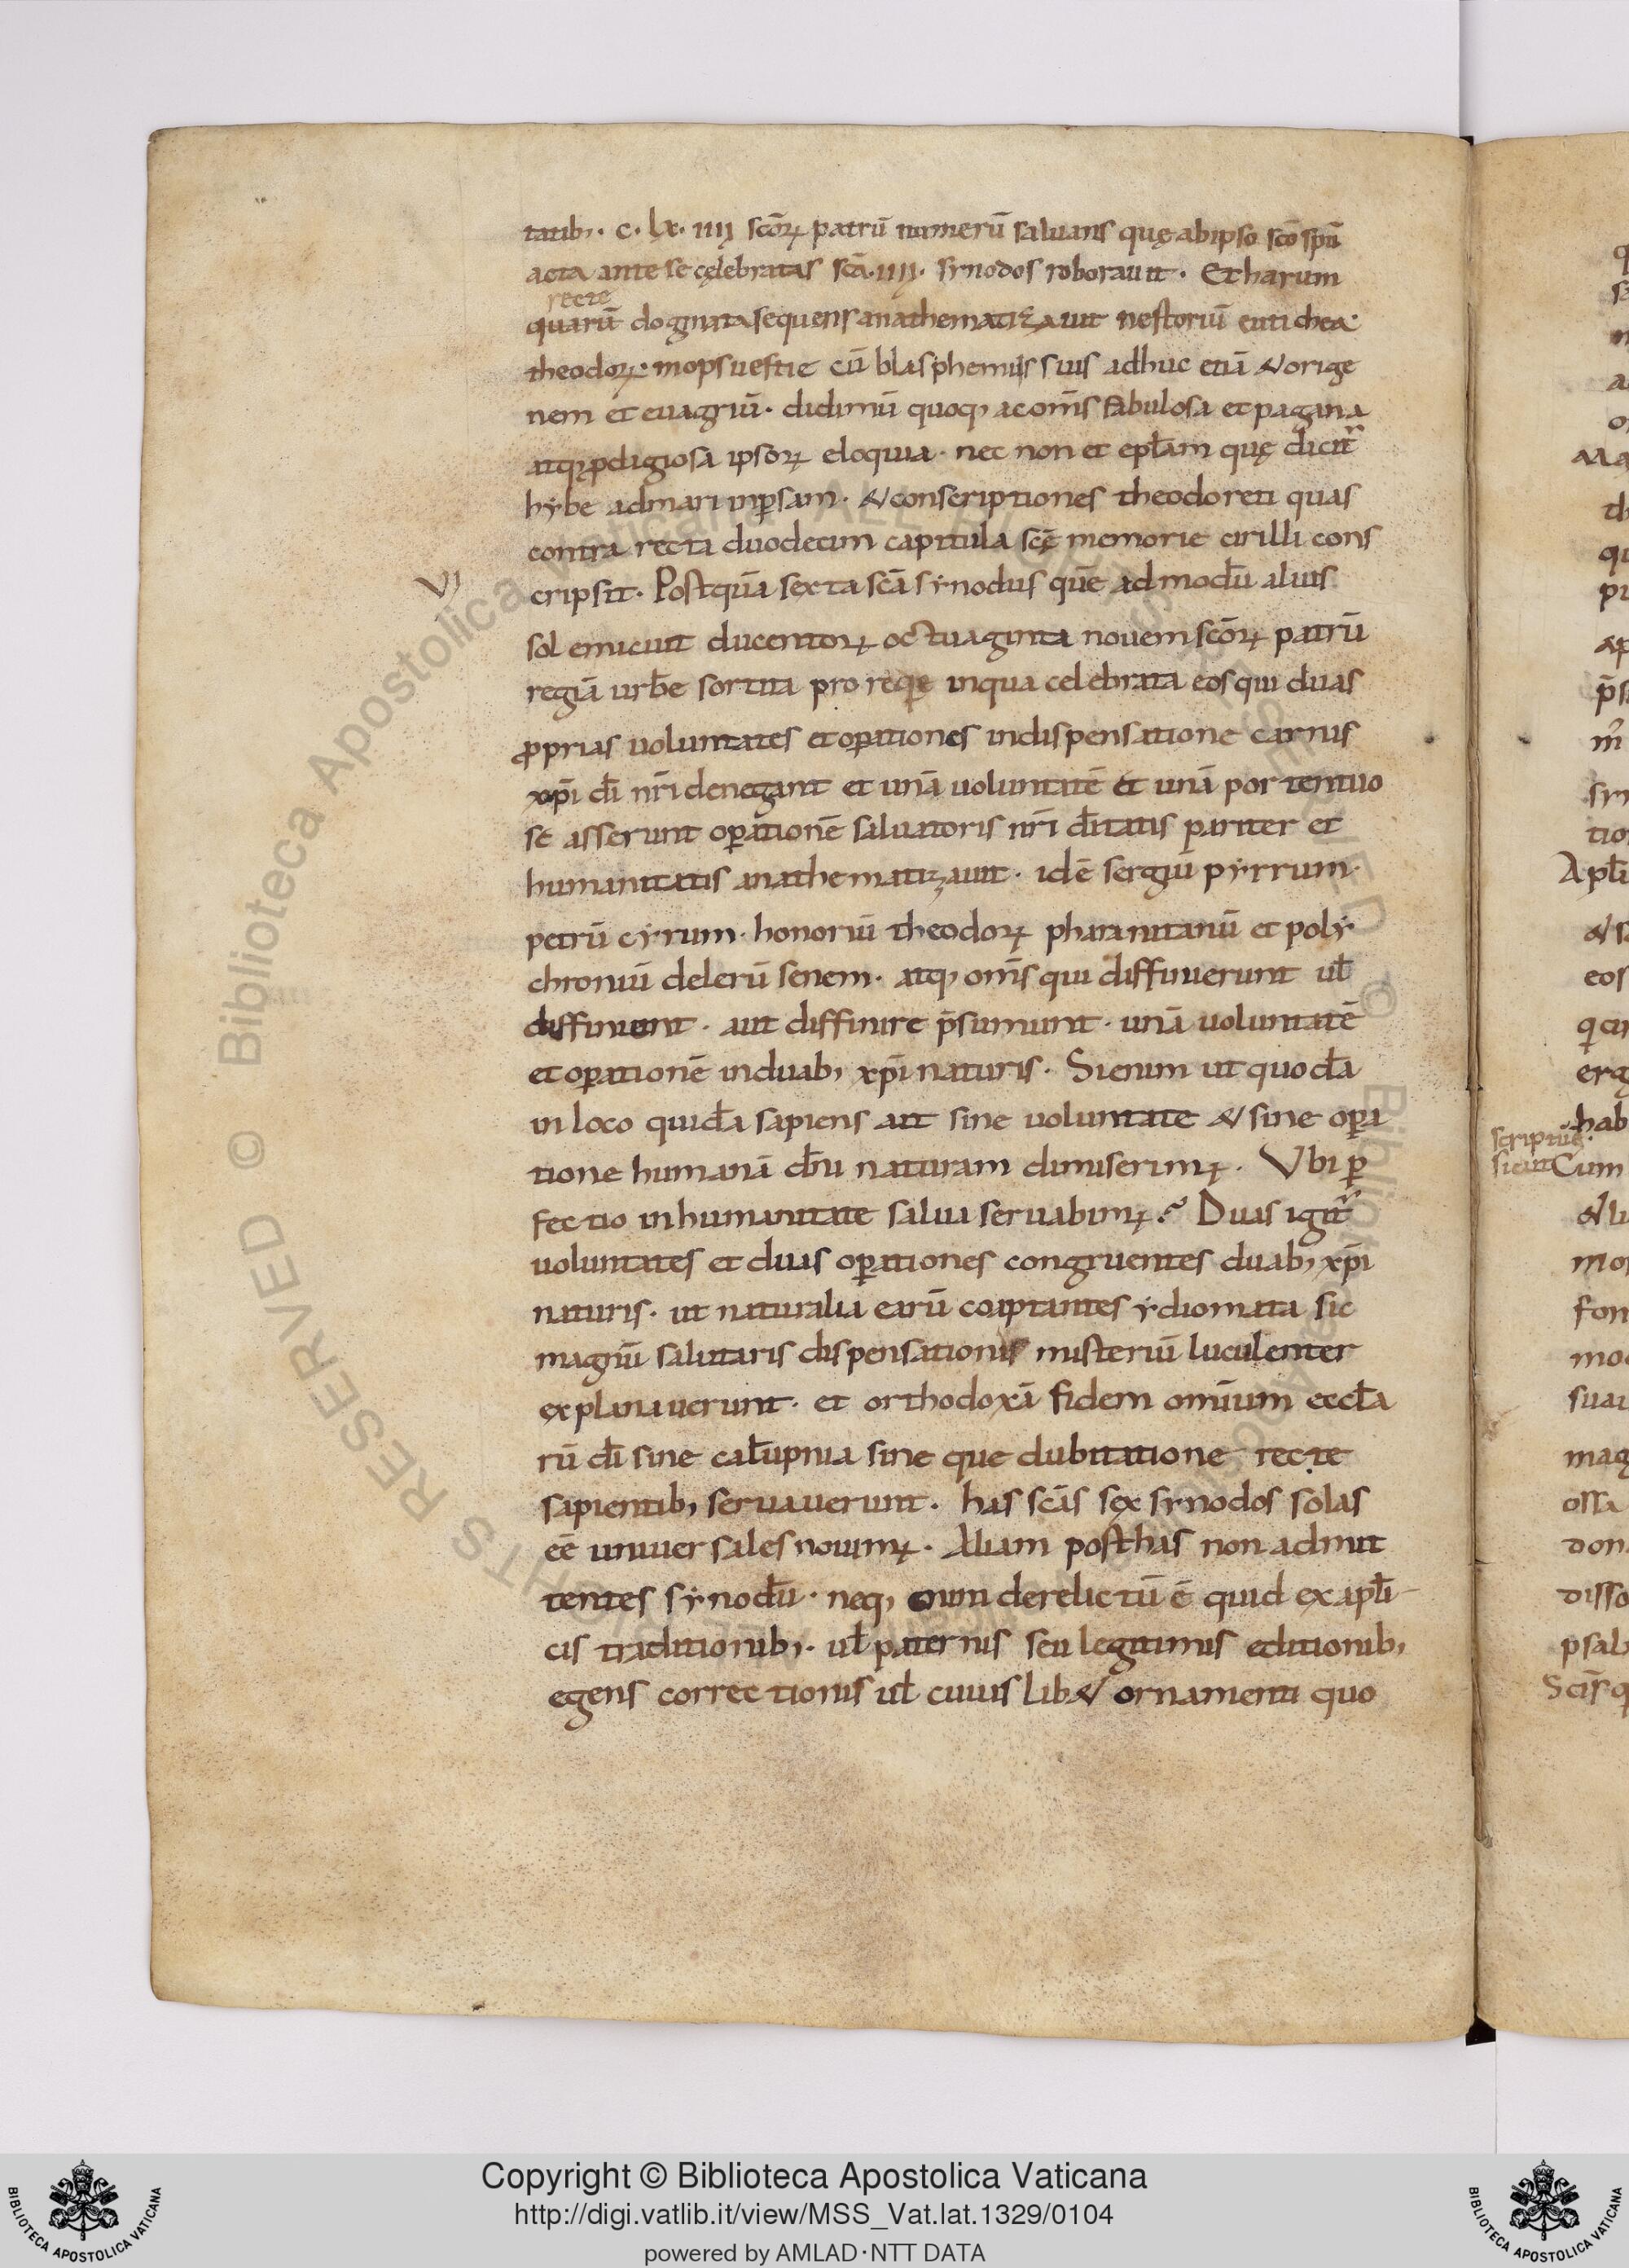 tatib; · c · lx · iiii scōrꝝ patrū numerū saluans quę ab ipso scō spū
acta ante se cęlebratas scā · iiii · synodos roborauit · Et harum
recte
quarū dogmata sequens anathematizauit nestoriū eutichea ·
theodorꝝ · mopsuestie cū blasphemiis suis adhuc etiā & orige
nem et euagriū · didimū quoq; ac om̄s fabulosa et pagana
atq; ꝓdigiosa ipsorꝝ eloquia · nec non et epłam quę dicit᷑
hybe ad mari in ꝑsam · & conscriptiones theodoreti quas
contra recta duodecim capitula scę̄ memorie cirilli cons
VI
cripsit · Postquā sexta scā synodus quē admodū aluis
sol emicuit ducentorꝝ octuaginta nouem scōrꝝ patrū
regiā urbē sortita pro req̄ie in qua celebrata eos qui duas
ꝓprias uoluntates et oꝑationes in dispensatione carnis
xp̄i dī nr̄i denegant et unā uoluntatē et unā portentuo
se asserunt oꝑationē saluatoris nr̄i dītatis pariter et
humanitatis anathematizauit · idē sergiū pyrrum ·
petrū cyrum · honoriū theodorꝝ pharanitanū et poly
chroniū delerū senem · atq; om̄s qui diffinierunt uł
diffiniunt · aut diffinire p̄sumunt · unā uoluntatē
et oꝑationē in duab; xp̄i naturis · Si enim ut quodā
in loco quidā sapiens ait sine uoluntate & sine oꝑa
tione humanā dn̄i naturam dimiserimꝝ · Vbi ꝑ
fectio in humanitate salua seruabimꝝ ? Duas igit᷑
uoluntates et duas oꝑationes congruentes duab; xp̄i
naturis · ut naturalia earū coaptantes ydiomata sic
magnū salutaris dispensationis misteriū luculenter
explanauerunt · et orthodoxā fidem omīum eccłā
rū dī sine całupnia sine que dubitatione recte
sapientib; seruauerunt · has scās sex synodos solas
eē uniuersales nouimꝝ · Aliam post has non admit
tentes synodū · neq; enim derelictū ē quid ex apłi
cis traditionib; · uł paternis seu legitimis editionib;
egens correctionis uł cuius lib& ornamenti quo
scriptūę ·
sicut Cum
Copyright © Biblioteca Apostolica Vaticana
http://digi.vatlib.it/view/MSS_Vat.lat.1329/0104
powered by AMLAD·NTT DATA
BIBLIOTECA APOSTOLICA VATICANA
BIBLIOTECA APOSTOLICA VATICANA